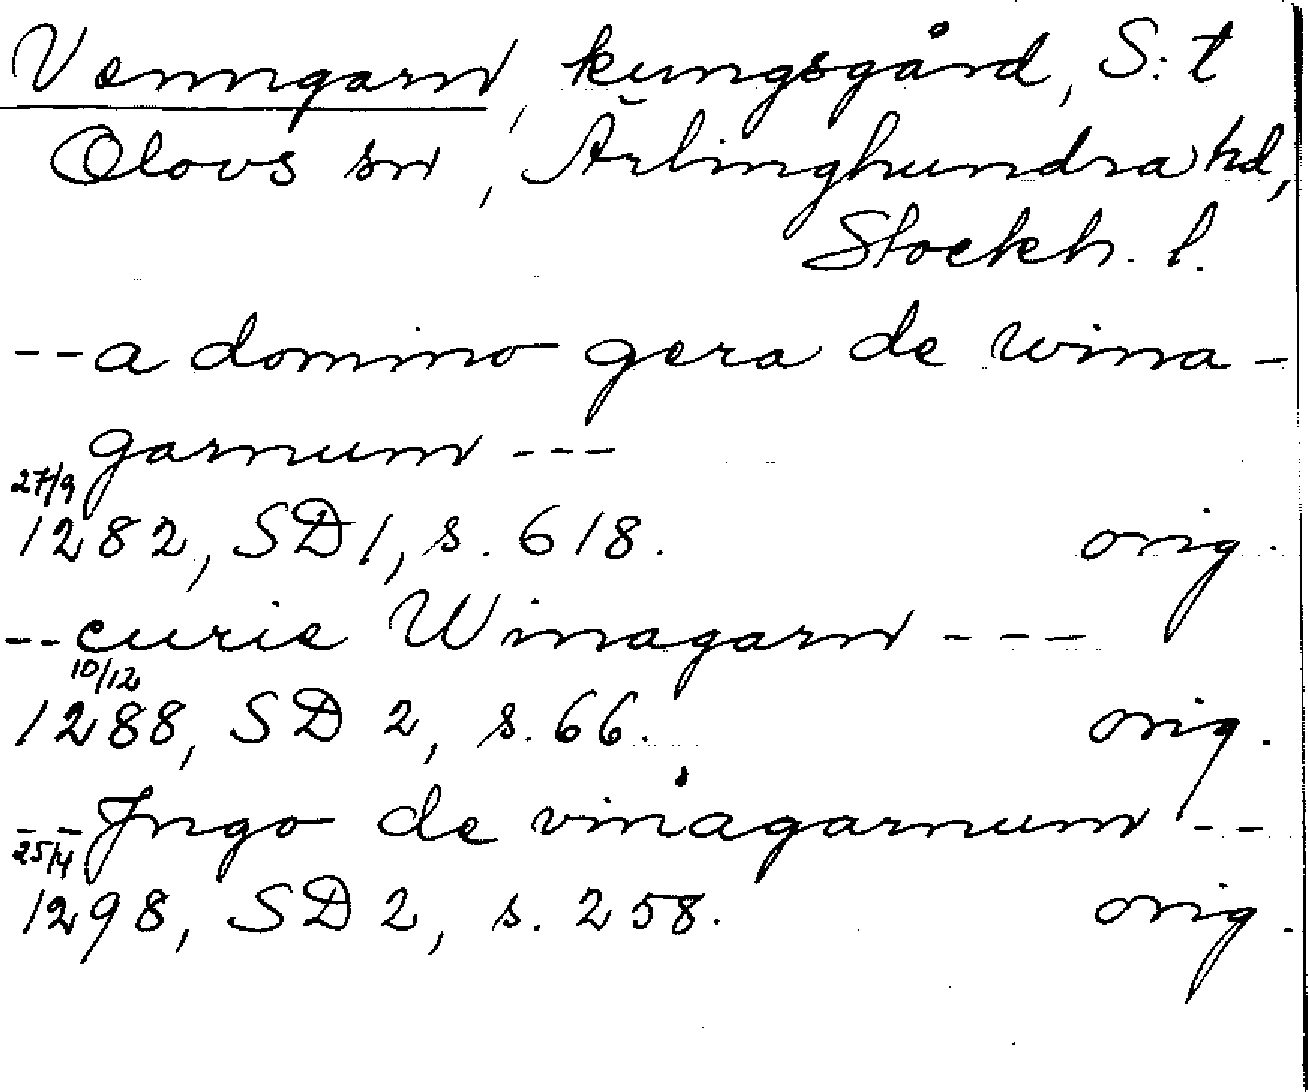 Venngarn, kungsgård, S:t
Olovs sn, Ärlinghundra hd,
Stockh. l.
--a domino gera de wina-
garnum ---
27/9
1282, SD 1, s. 618. orig.
--curie Winagarn ---
10/12
1288, SD 2, s. 66. orig.
--Jngo de vinagarnum --
25/4
1298, SD 2, s. 258. orig.